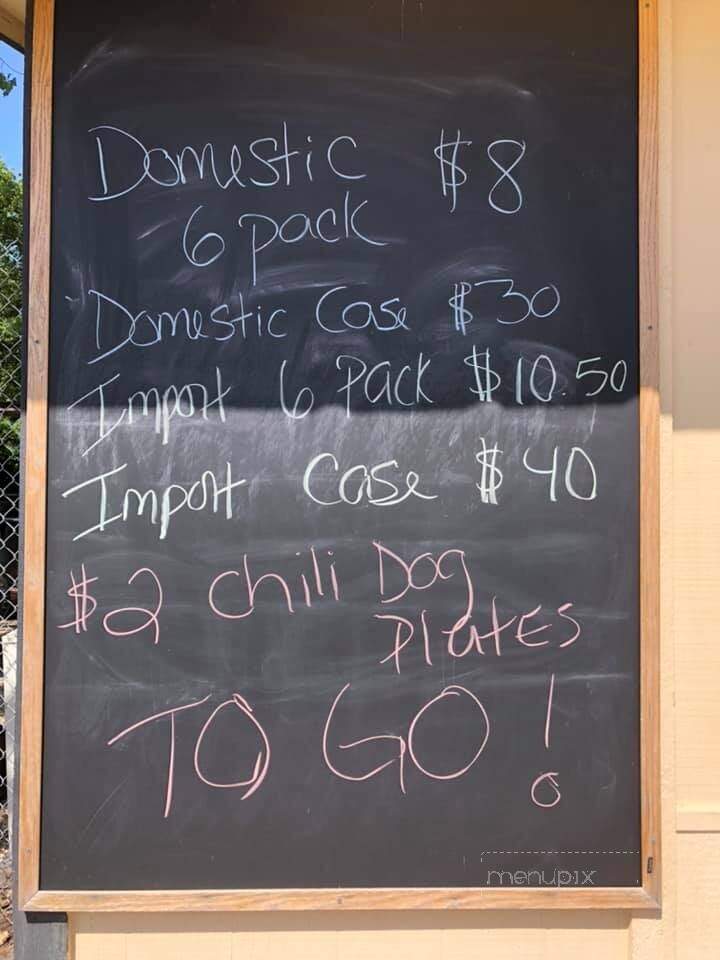 Domestic $8
6 pack
Domestic Case $30
Import 6 Pack $10.50
Import Case $40
$2 Chili Dog
PlatES
TO GO!
menupix